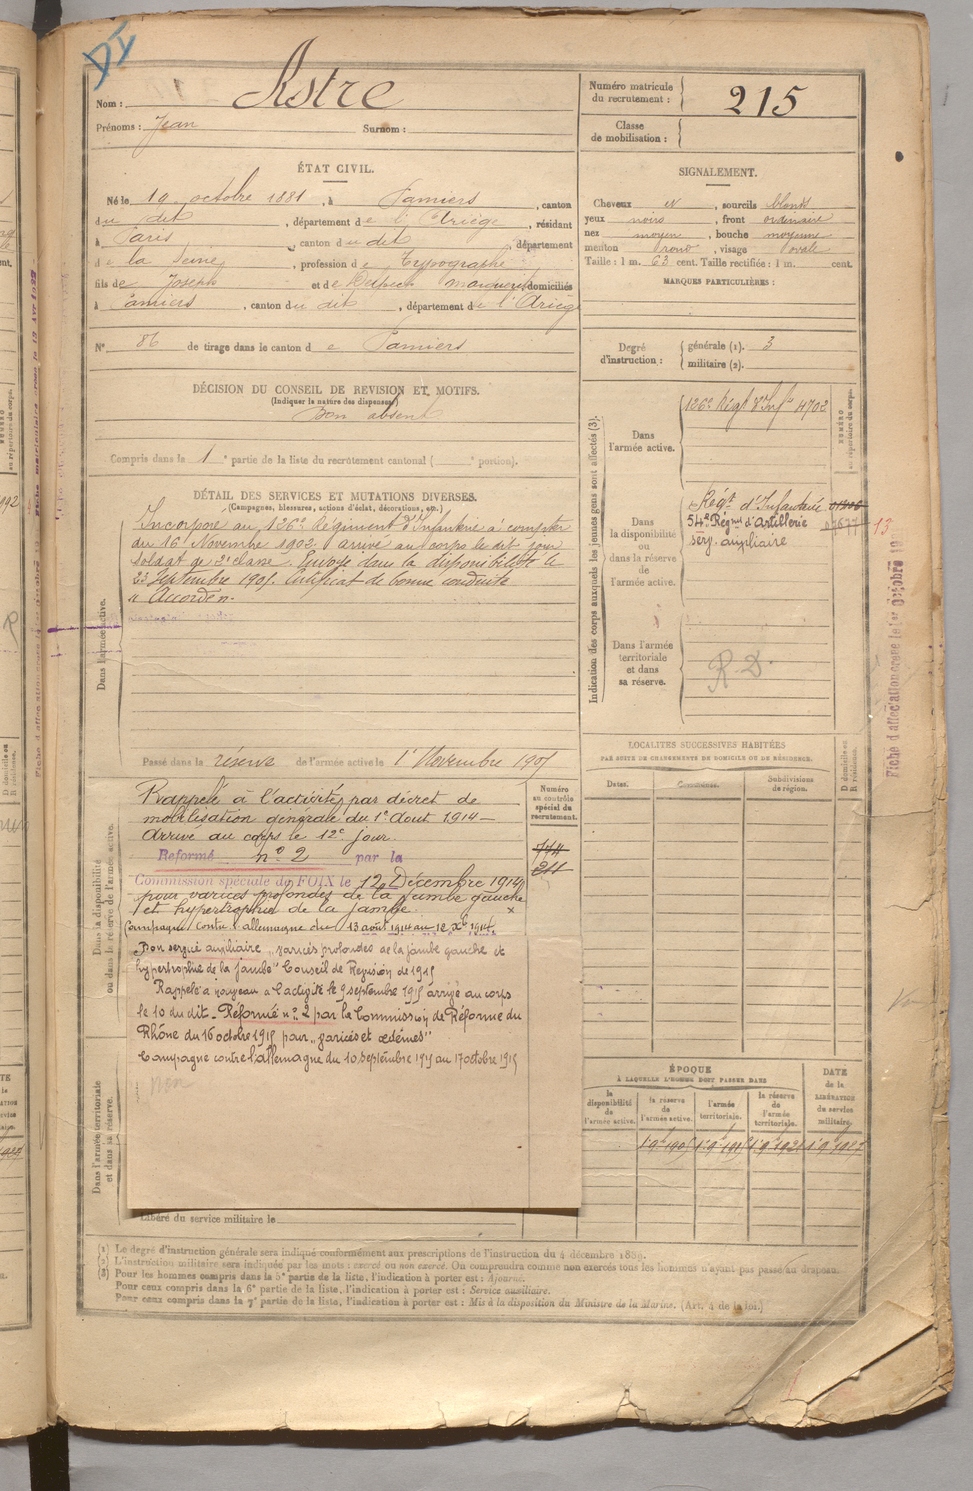 DI
Nom : Astre
Prénoms : Jean Surnom :
Numéro matricule du recrutement : 215
Classe de mobilisation :
ÉTAT CIVIL.
Né le 19 octobre 1881, à Pamiers, canton
du dit, département de l'Ariège, résidant
à Paris, canton du dit, département
de la Seine, profession de typographe
fils de Joseph et de Delpech Marguerite, domiciliés
à Pamiers, canton du dit, département de l'Ariège
N° 86 de tirage dans le canton de Pamiers
DÉCISION DU CONSEIL DE REVISION ET MOTIFS.
(Indiquer la nature des dispenses)
Bon absent
Compris dans la 1e partie de la liste du recrutement cantonal ( e portion).
SIGNALEMENT.
Cheveux et, sourcils blonds
yeux noirs, front ordinaire
nez moyen, bouche moyenne
menton rond, visage ovale
Taille : 1 m. 63 cent. Taille rectifiée : 1 m. cent.
MARQUES PARTICULIÈRES :
Degré d'instruction : générale (1). 3
militaire (2).
DÉTAIL DES SERVICES ET MUTATIONS DIVERSES.
(Campagnes, blessures, actions d'éclat, décorations, etc.)
Dans l'armée active.
Incorporé au 126e Régiment d'Infanterie à compter
du 16 Novembre 1902. arrivé au corps le dit jour
soldat de 2e classe. Envoyé dans la disponibilité le
23 Septembre 1905. Certificat de bonne conduite
"Accordé".
Passé dans la réserve de l'armée active le 1er Novembre 1905
Indication des corps auxquels les jeunes gens sont affectés (3).
Dans l'armée active.
126e Régt d'Infie 4702
Dans la disponibilité ou dans la réserve de l'armée active.
Régt d'Infanterie
54e Régnt d'Artillerie
serv. auxiliaire
13
Dans l'armée territoriale et dans sa réserve.
R.D.
Fiche d'affectation créée le 1er Octobre
Dans la disponibilité ou dans la réserve de l'armée active.
Rappelé à l'activité par décret de
mobilisation générale du 1er Aout 1914 —
Arrivé au corps le 12e jour.
Reformé n° 2 par la
Commission spéciale de FOIX le 12 Décembre 1914
pour varices profondes de la jambe gauche
et hypertrophie de la jambe.
Campagne contre l'allemagne du 13 août 1914 au 12 Xbre 1914.
Bon service auxiliaire "varices profondes de la jambe gauche et
hypertrophie de la jambe" Conseil de Revision de 1915
Rappelé à nouveau à l'activité le 9 septembre 1915 arrivé au corps
le 10 du dit. Réformé n° 2 par la Commission de Réforme du
Rhône du 16 octobre 1915 pour "varices et œdèmes"
Campagne contre l'allemagne du 10 septembre 1915 au 17 octobre 1915
non
Numéro au contrôle spécial du recrutement.
211
Dans l'armée territoriale et dans sa réserve.
Libéré du service militaire le
LOCALITÉS SUCCESSIVES HABITÉES
PAR SUITE DE CHANGEMENTS DE DOMICILE OU DE RÉSIDENCE.
Dates. Communes. Subdivisions de région. D domicile ou R résidence.
ÉPOQUE
À LAQUELLE L'HOMME DOIT PASSER DANS
la disponibilité de l'armée active. la réserve de l'armée active. l'armée territoriale. la réserve de l'armée territoriale.
DATE de la LIBÉRATION du service militaire.
(1) Le degré d'instruction générale sera indiqué conformément aux prescriptions de l'instruction du 4 décembre 1889.
(2) L'instruction militaire sera indiquée par les mots : exercé ou non exercé. On comprendra comme non exercés tous les hommes n'ayant pas passé au drapeau.
(3) Pour les hommes compris dans la 5e partie de la liste, l'indication à porter est : Ajourné.
Pour ceux compris dans la 6e partie de la liste, l'indication à porter est : Service auxiliaire.
Pour ceux compris dans la 7e partie de la liste, l'indication à porter est : Mis à la disposition du Ministre de la Marine. (Art. 4 de la loi.)